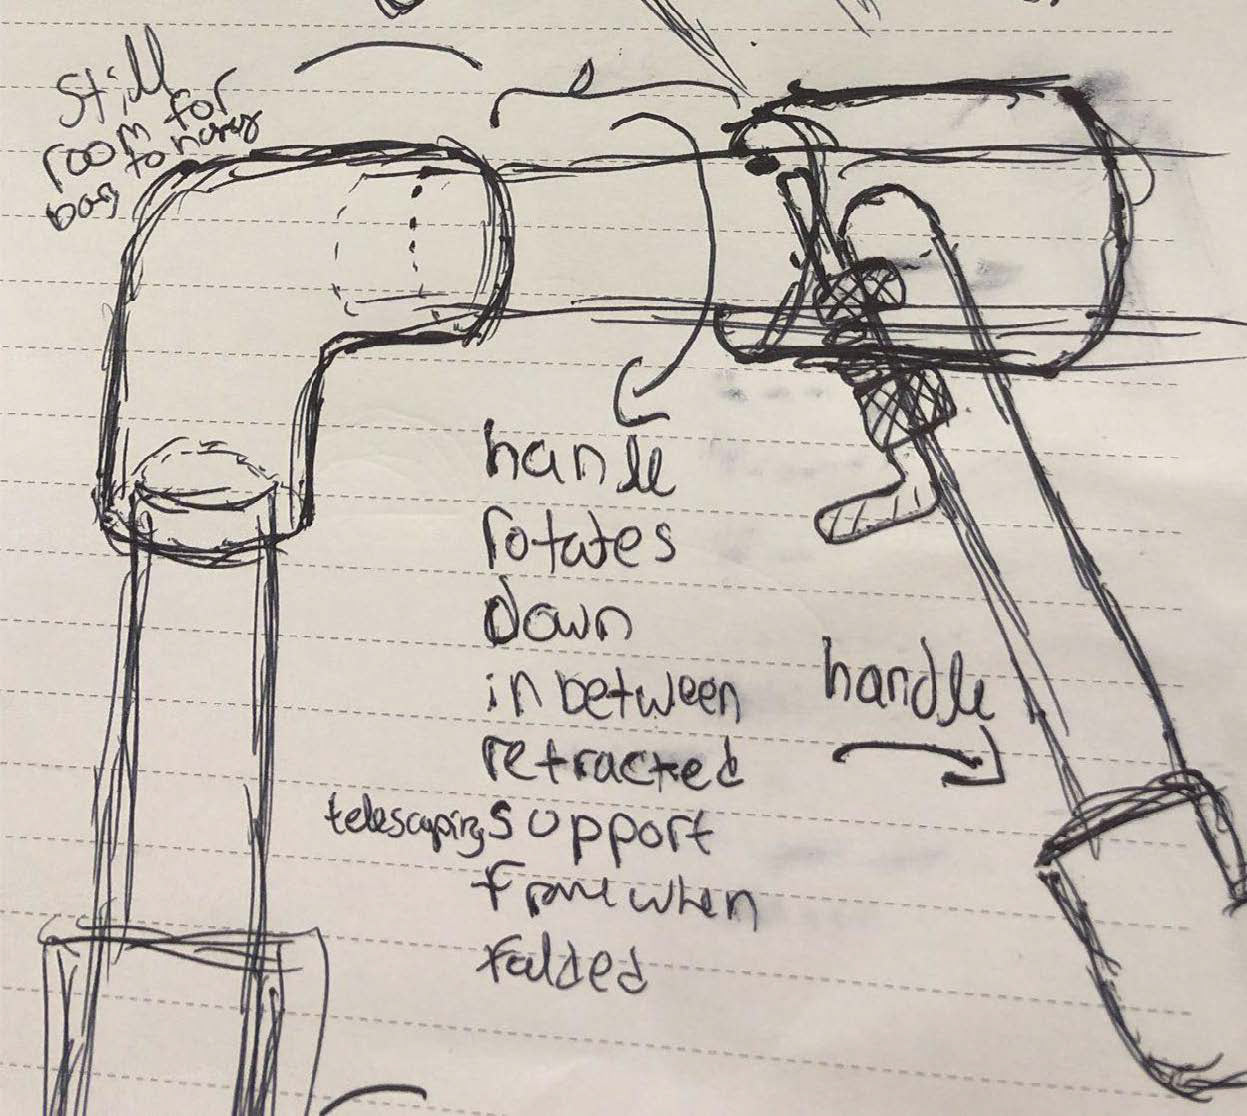 Still
room for
bag to
handle
rotates
down
in between
retracted
telescoping support
frame when
folded
handle